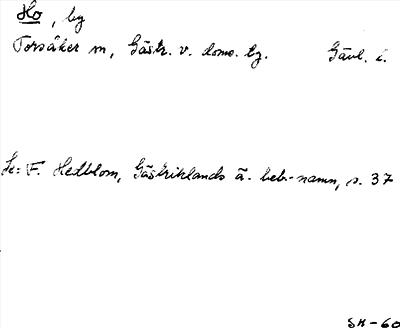 Ho, by
Torsåker sn, Gästr. v. doms. tg. Gävl. l.
Se: F. Hedblom, Gästriklands ä. beb-namn, s. 37
SH-60